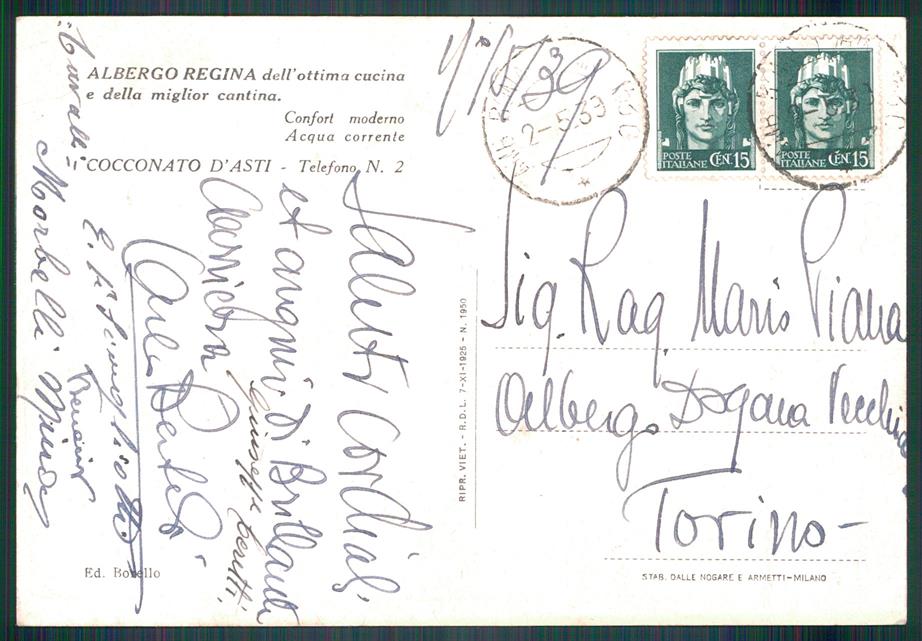 ALBERGO REGINA dell'ottima cucina
e della miglior cantina.
Confort moderno
Acqua corrente
COCCONATO D'ASTI - Telefono N. 2
Saluti Cordiali
et auguri di Brillante
Carlo
Giuseppe
Morbelli
Ed. Borello
RIPR. VIET. - R.D.L. 7-XI-1925 - N. 1950
1º/5/39
2-5.39
POSTE
ITALIANE CEN. 15
POSTE
ITALIANE CEN. 15
Sig. Rag. Mario Piana
Albergo Dogana Vecchia
Torino-
STAB. DALLE NOGARE E ARMETTI-MILANO